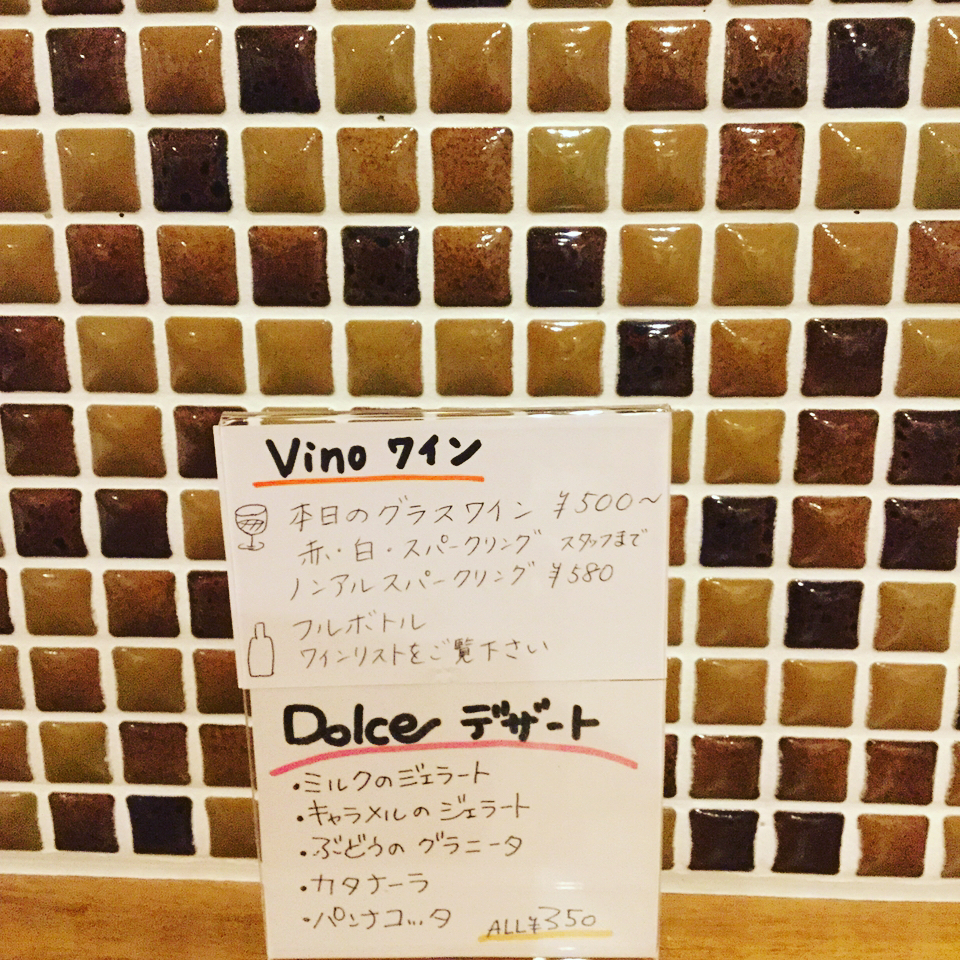 Vino ワイン
本日のグラスワイン ¥500～
赤・白・スパークリング スタッフまで
ノンアルスパークリング ¥580
フルボトル
ワインリストをご覧下さい
Dolce デザート
・ミルクのジェラート
・キャラメルのジェラート
・ぶどうのグラニータ
・カタナーラ
・パンナコッタ ALL¥350